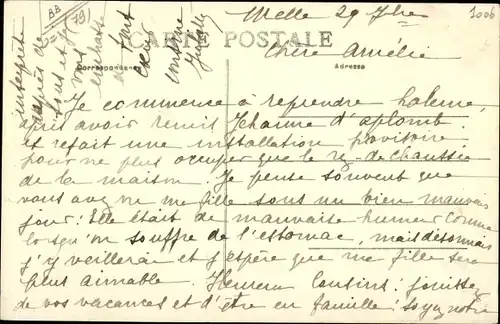 Melle 29 7bre
1006
BB
79)
CARTE POSTALE
Correspondance
Adresse
Chère Amélie
Je commence à reprendre haleine,
après avoir remis Jeanne d'aplomb.
et refait une installation provisoire
pour ne plus occuper que le rez-de-chaussée
de la maison. Je pense souvent que
vous avez vu ma fille sous un bien mauvais
jour! Elle était de mauvaise humeur comme
lorsqu'on souffre de l'estomac, mais désormais
j'y veillerai et j'espère que ma fille sera
plus aimable. Heureux cousins! jouissez
de vos vacances et d'être en famille! soyez notre
interprète
auprès de
tous et je
vous
embrasse
tout
cœur